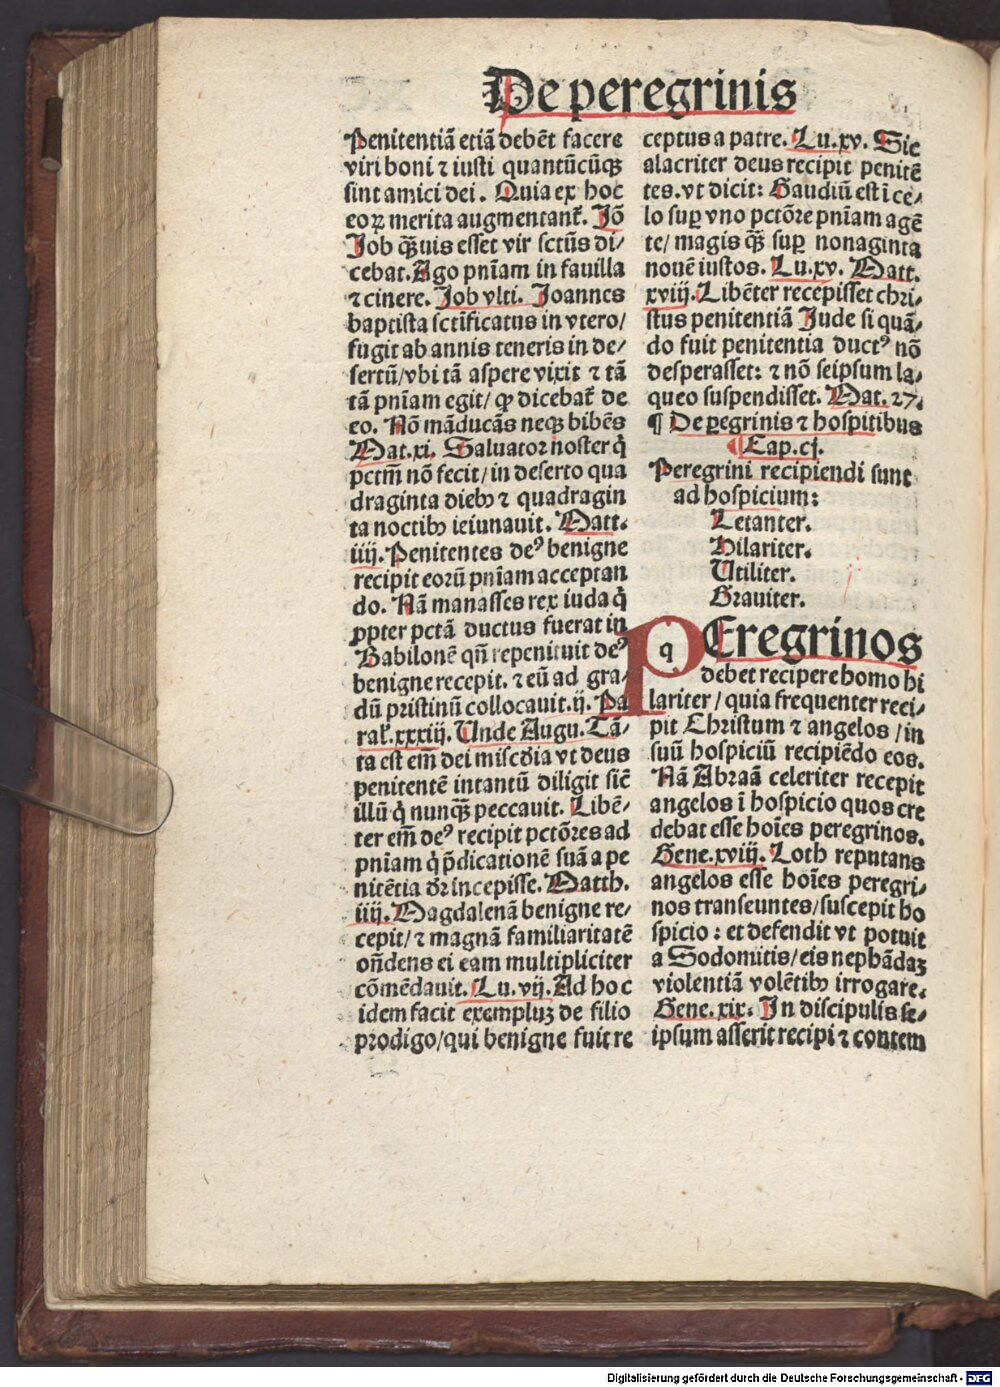 De peregrinis
Penitentiã etiã debẽt facere
viri boni ⁊ iusti quantũcũqꝫ
sint amici dei. Quia ex hoc
eoꝝ merita augmentant᷑. Jõ
Job qꝫ̃uis esset vir sctũs di⸗
cebat. Ago pniam in fauilla
⁊ cinere. Job vlti. Joannes
baptista sctificatus in vtero/
fugit ab annis teneris in de⸗
sertũ/vbi tã aspere vixit ⁊ tã
tã pniam egit/ ꝙ dicebat᷑ de
eo. Nõ mãducãs neqꝫ bibẽs
Mat.xi. Saluator noster q̇
pctm̃ nõ fecit/ in deserto qua
draginta dieb⁹ ⁊ quadragin
ta noctib⁹ ieiunauit. Matt.
iiij. Penitentes de⁹ benigne
recipit eozũ pniam acceptan
do. Nã manasses rex iuda q̇
ꝓpter pctã ductus fuerat in
Babilonẽ qñ repenituit de⁹
benigne recepit. ⁊ eũ ad gra⸗
dũ pristinũ collocauit. ij. Pa
ral᷑.xxxiij. Unde Augu. Tã⸗
ta est em̃ dei miscd̃ia vt deus
penitentẽ intantũ diligit sic̃
illũ q̇ nunqꝫ̃ peccauit. Libẽ⸗
ter em̃ de⁹ recipit pctõres ad
pniam q̇ p̃dicationẽ suã a pe
nitẽtia dr̃ incepisse. Matth.
iiij. Magdalenã benigne re⸗
cepit/ ⁊ magnã familiaritatẽ
oñdens ei eam multipliciter
cõmẽdauit. Lu.vij. Ad hoc
idem facit exempluꝫ de filio
prodigo/qui benigne fuit re
ceptus a patre. Lu.xv. Sic
alacriter deus recipit penitẽ
tes. vt dicit: Gaudiũ est ĩ ce⸗
lo suꝑ vno pctõre pniam agẽ
te/ magis qꝫ̃ suꝑ nonaginta
nouẽ iustos. Lu.xv. Matt.
xviij. Libẽter recepisset chri⸗
stus penitentiã Jude si quã⸗
do fuit penitentia duct⁹ nõ
desperasset: ⁊ nõ seipsum la⸗
queo suspendisset. Mat. 27.
¶ De ꝑegrinis ⁊ hospitibus
¶ Cap.cj.
Peregrini recipiendi sunt
ad hospicium:
Letanter.
Hilariter.
Utiliter.
Grauiter.
PEregrinos
q
debet recipere homo hi
lariter/ quia frequenter reci⸗
pit Christum ⁊ angelos/ in
suũ hospiciũ recipiẽdo eos.
Nã Abraã celeriter recepit
angelos ĩ hospicio quos cre
debat esse hoĩes peregrinos.
Gene.xviij. Loth reputans
angelos esse hoĩes peregri⸗
nos transeuntes/suscepit ho
spicio: et defendit vt potuit
a Sodomitis/eis nephãdaꝫ
violentiã volẽtib⁹ irrogare.
Gene.xix. In discipulis se⸗
ipsum asserit recipi ⁊ contem
Digitalisierung gefördert durch die Deutsche Forschungsgemeinschaft - DFG